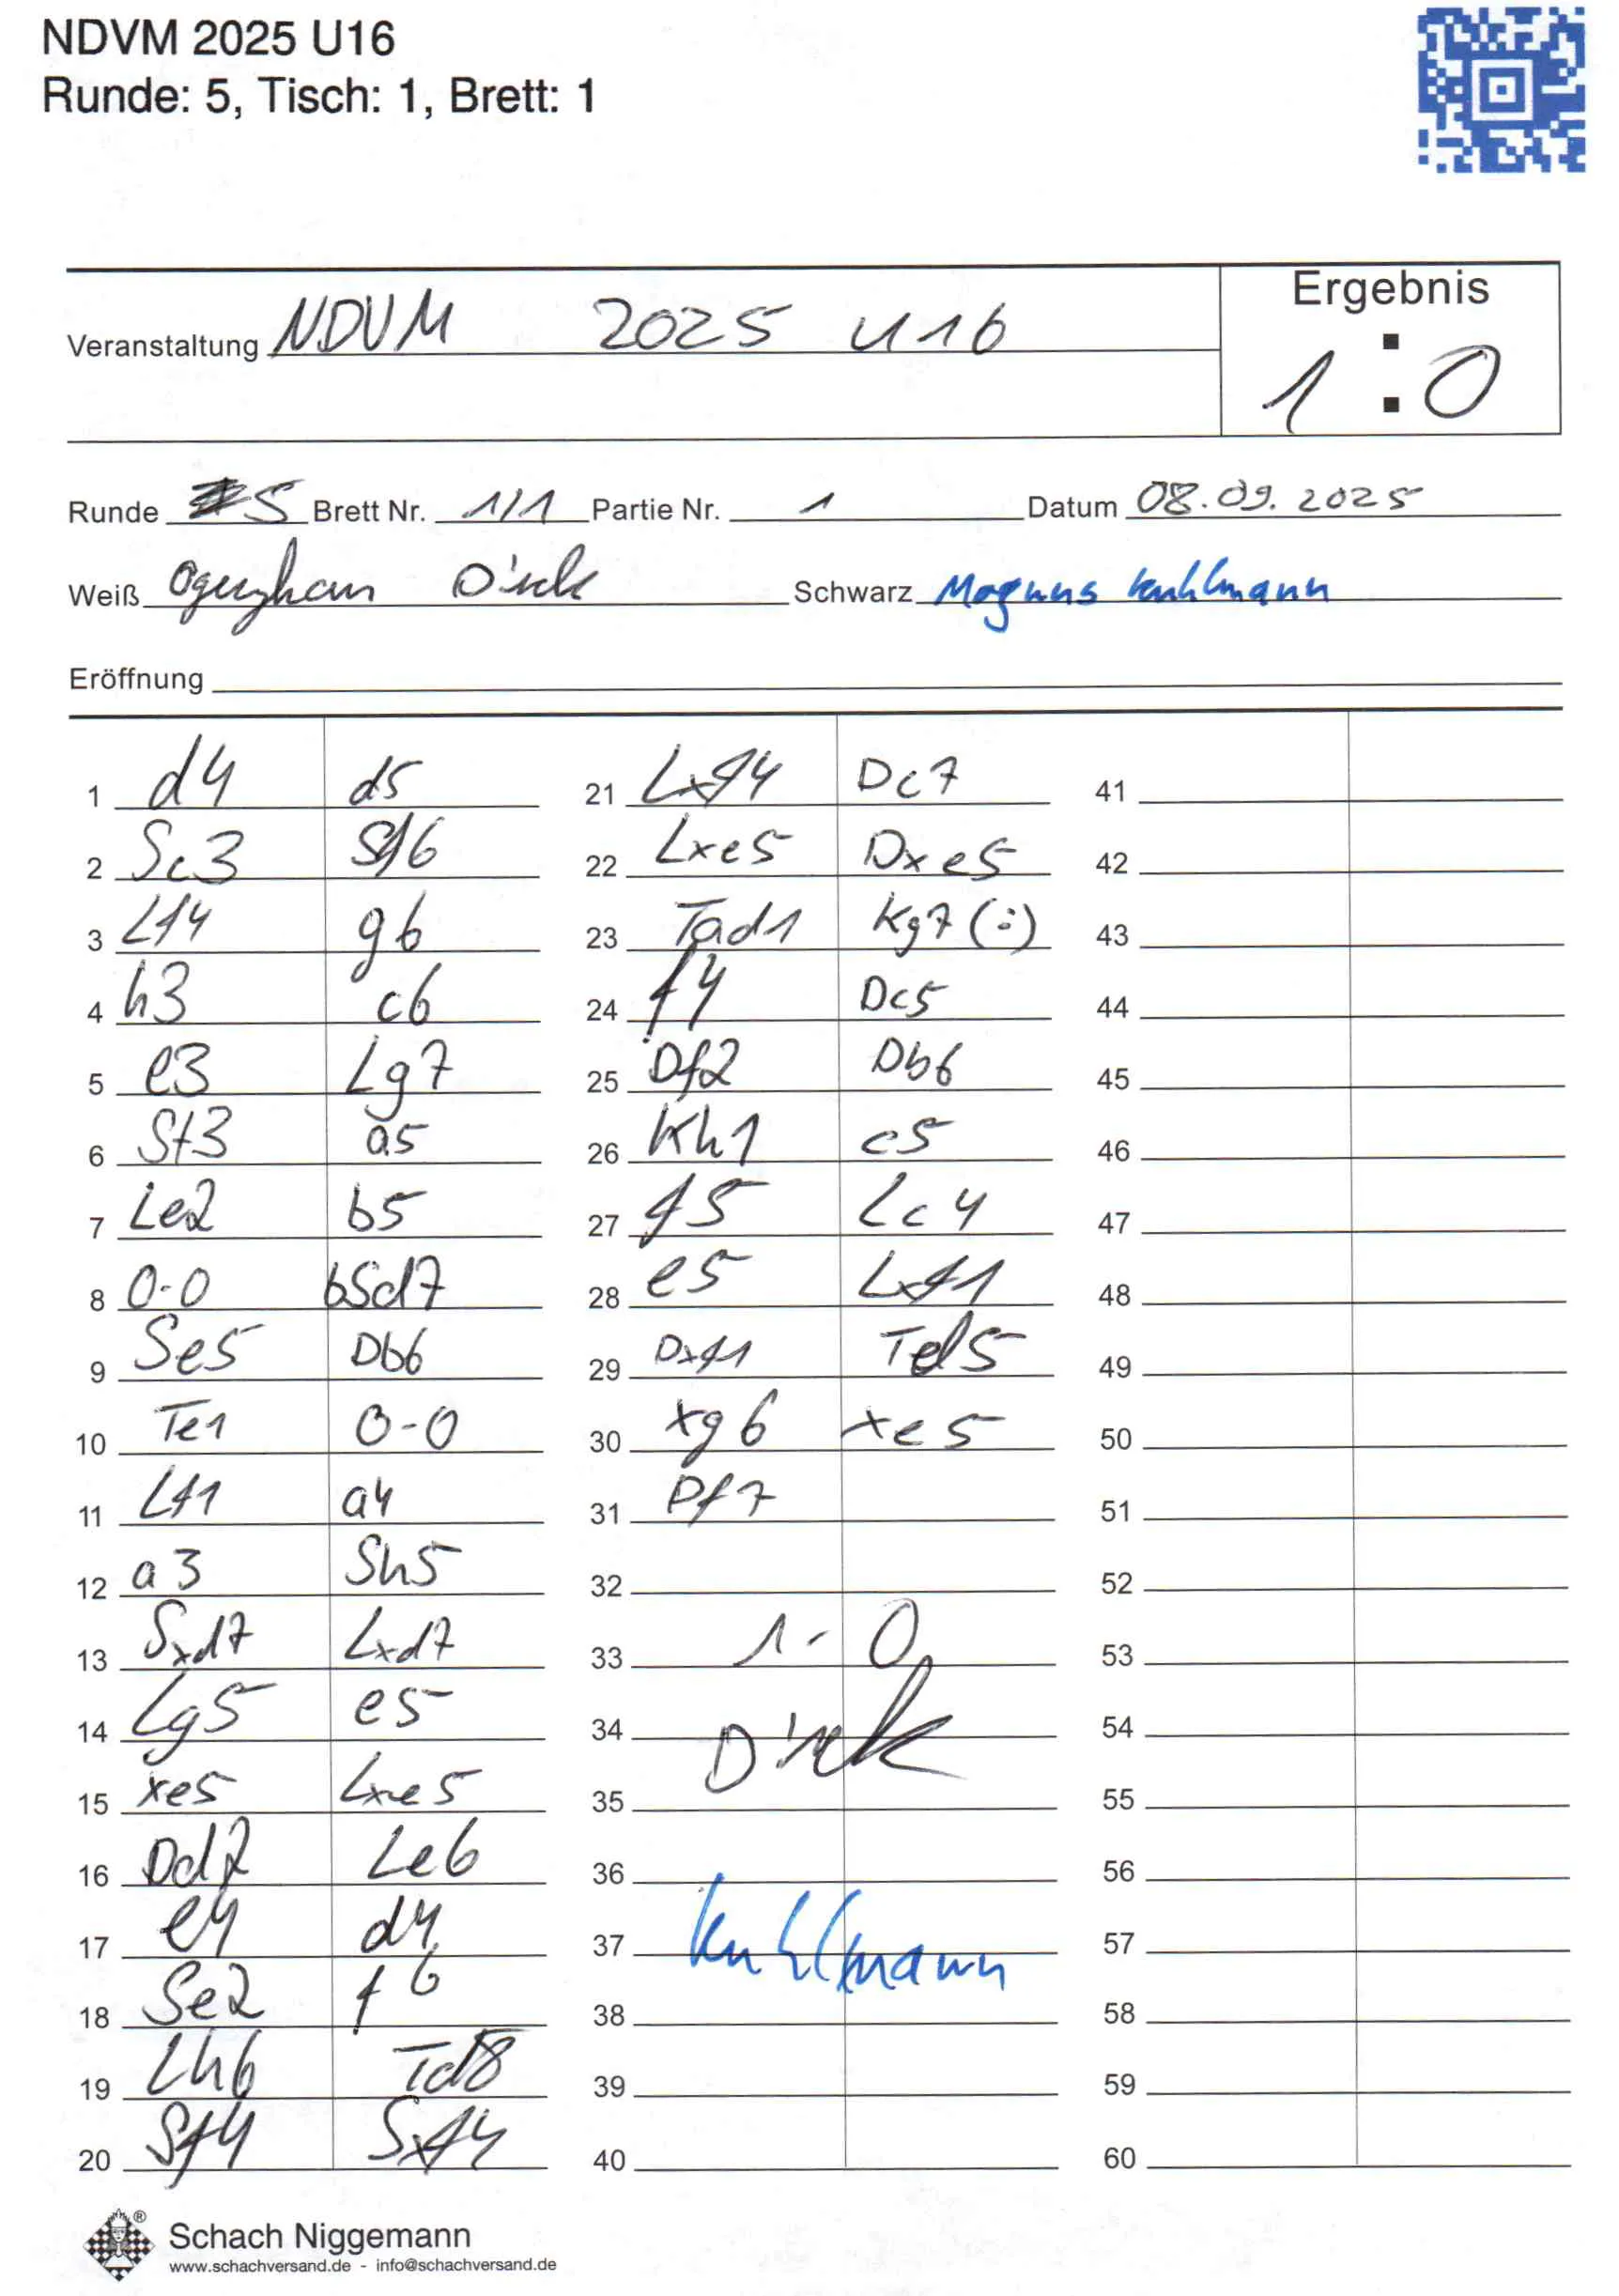 NDVM 2025 U16
Runde: 5, Tisch: 1, Brett: 1
Veranstaltung NDVM 2025 U16
Ergebnis
1 : 0
Runde 5 Brett Nr. 1/1 Partie Nr. 1 Datum 08.09.2025
Weiß Oguzhan Schwarz Magnus Kuhlmann
Eröffnung
1 d4 d5 21 Lxf4 Dc7 41
2 Sc3 Sf6 22 Lxe5 Dxe5 42
3 Lf4 g6 23 Tad1 Kg7 (=) 43
4 h3 c6 24 f4 Dc5 44
5 e3 Lg7 25 Df2 Db6 45
6 Sf3 a5 26 Kh1 c5 46
7 Le2 b5 27 f5 Lc4 47
8 0-0 bSd7 28 e5 Lxf1 48
9 Se5 Db6 29 Dxf1 Td5 49
10 Te1 0-0 30 xg6 xe5 50
11 Lf1 a4 31 Df7 51
12 a3 Sh5 32 52
13 Sxd7 Lxd7 33 1-0 53
14 Lg5 e5 34 54
15 xe5 Lxe5 35 55
16 Dd2 Le6 36 56
17 e4 d4 37 Kuhlmann 57
18 Se2 f6 38 58
19 Lh6 Td8 39 59
20 Sf4 Sxf4 40 60
Schach Niggemann
www.schachversand.de - info@schachversand.de